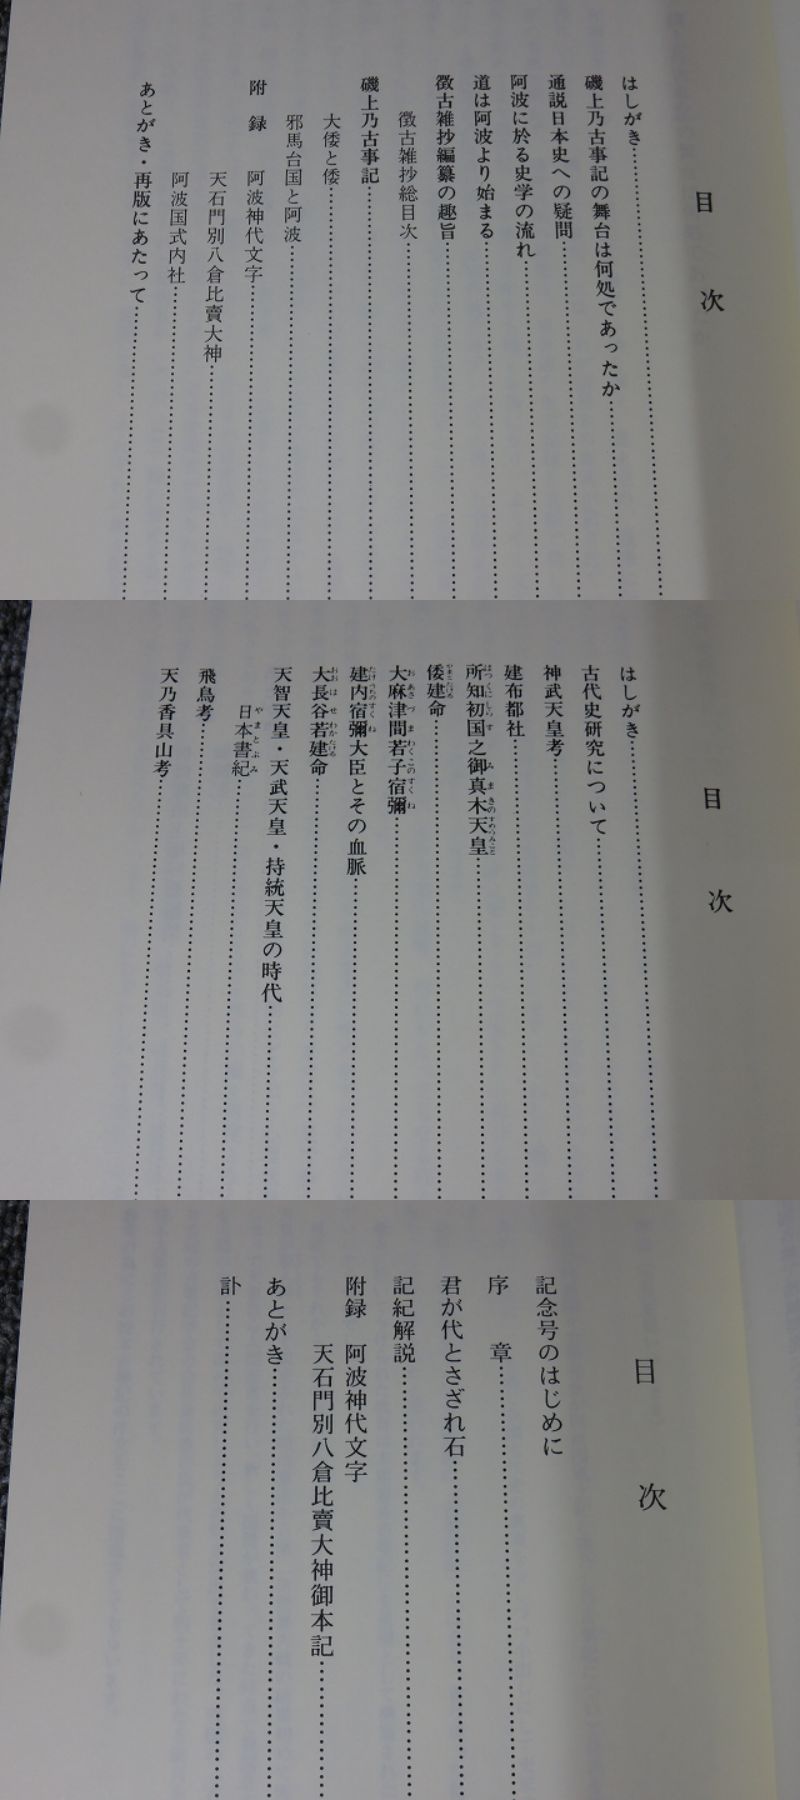 目次
はしがき
磯上乃古事記の舞台は何処であったか
通説日本史への疑問
阿波に於る史学の流れ
道は阿波より始まる
徴古雑抄編纂の趣旨
徴古雑抄総目次
磯上乃古事記
大倭と倭
邪馬台国と阿波
附録 阿波神代文字
天石門別八倉比賣大神
阿波国式内社
あとがき・再版にあたって
目次
はしがき
古代史研究について
神武天皇考
建布都社
所知初国之御真木天皇
倭建命
大麻津間若子宿彌
建内宿彌大臣とその血脈
大長谷若建命
天智天皇・天武天皇・持統天皇の時代
日本書紀
飛鳥考
天乃香具山考
目次
記念号のはじめに
序章
君が代とさざれ石
記紀解説
附録 阿波神代文字
天石門別八倉比賣大神御本記
あとがき
訃